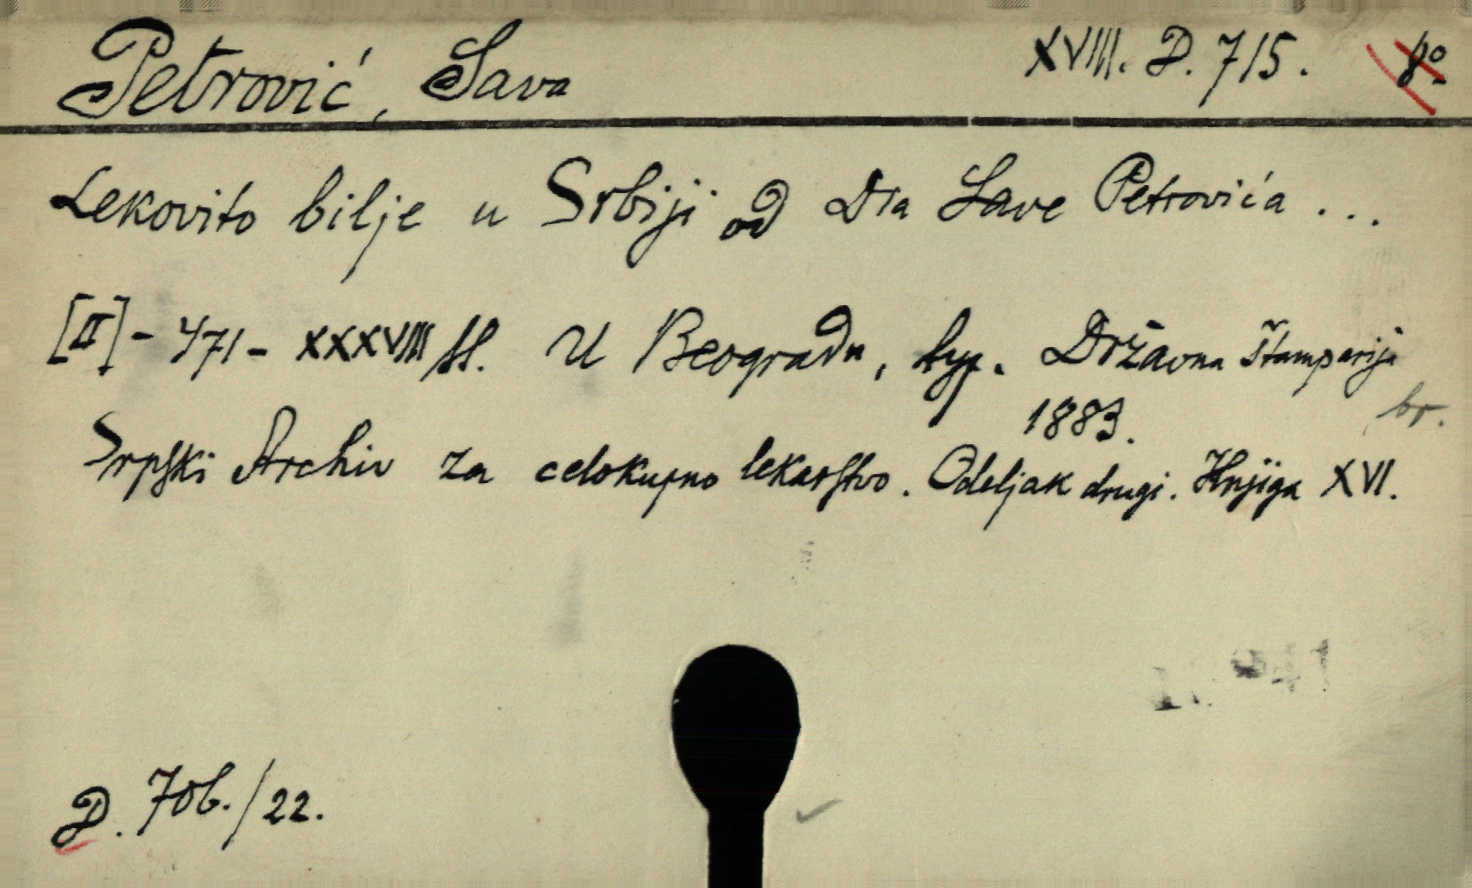 Petrović, Sava XVIII. D. 715. 8º
Lekovito bilje u Srbiji od Dra Save Petrovića ...
[II] - 471 - XXXVIII ss. U Beogradu, typ. Državna Štamparija
1883. br.
Srpski Archiv za celokupno lekarstvo. Odeljak drugi. Knjiga XVI.
D. 706./22.